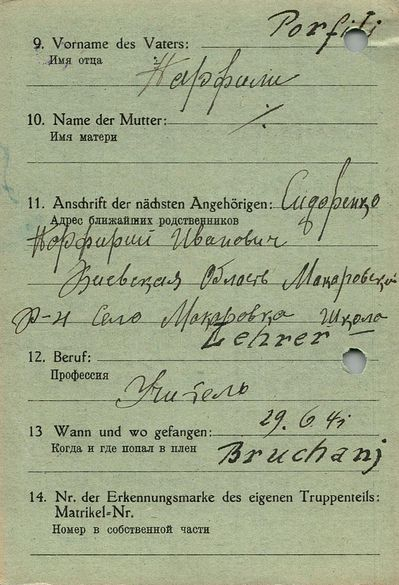 9. Vorname des Vaters: Porfiri
Имя отца
Порфири
10. Name der Mutter: ⁒
Имя матери
11. Anschrift der nächsten Angehörigen: Сидоренко
Адрес ближайших родственников
Порфирий Иванович
Киевская Область Макаровский
р-н Село Макаровка Школа
Lehrer
12. Beruf:
Профессия
Учитель
29.6.41
13 Wann und wo gefangen:
Когда и где попал в плен
Bruchanj
14. Nr. der Erkennungsmarke des eigenen Truppenteils:
Matrikel-Nr.
Номер в собственной части